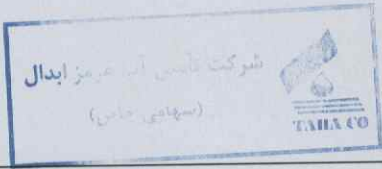 شرکت تأمین آب هرمز ابدال
(سهامی خاص)
TAHA CO